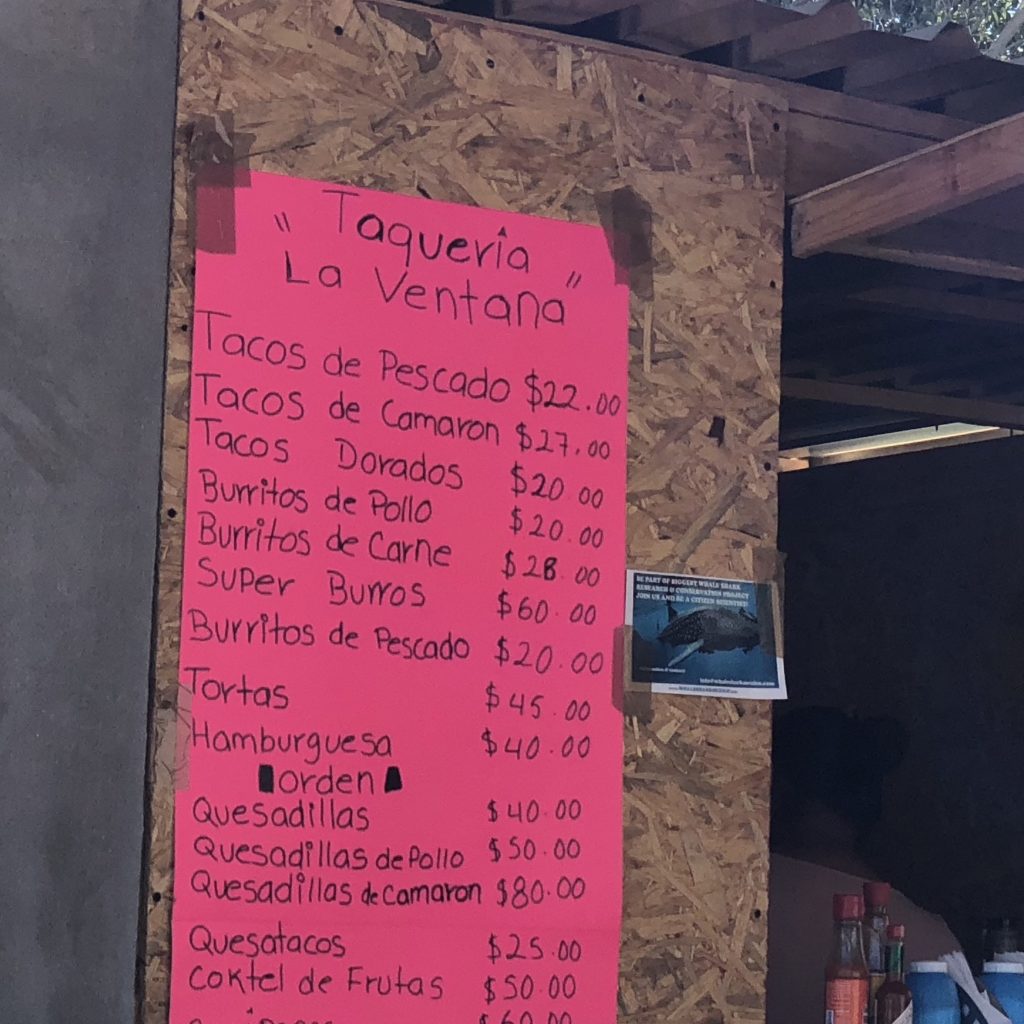 " Taquería
La Ventana "
Tacos de Pescado $22.00
Tacos de Camaron $27.00
Tacos Dorados $20.00
Burritos de Pollo $20.00
Burritos de Carne $28.00
Super Burros $60.00
Burritos de Pescado $20.00
Tortas $45.00
Hamburguesa $40.00
orden
Quesadillas $40.00
Quesadillas de Pollo $50.00
Quesadillas de Camaron $80.00
Quesatacos $25.00
Coktel de Frutas $50.00
$60.00
BE PART OF BIGGEST WHALE SHARK
RESEARCH & CONSERVATION PROJECT
JOIN US AND BE A CITIZEN SCIENTIST!